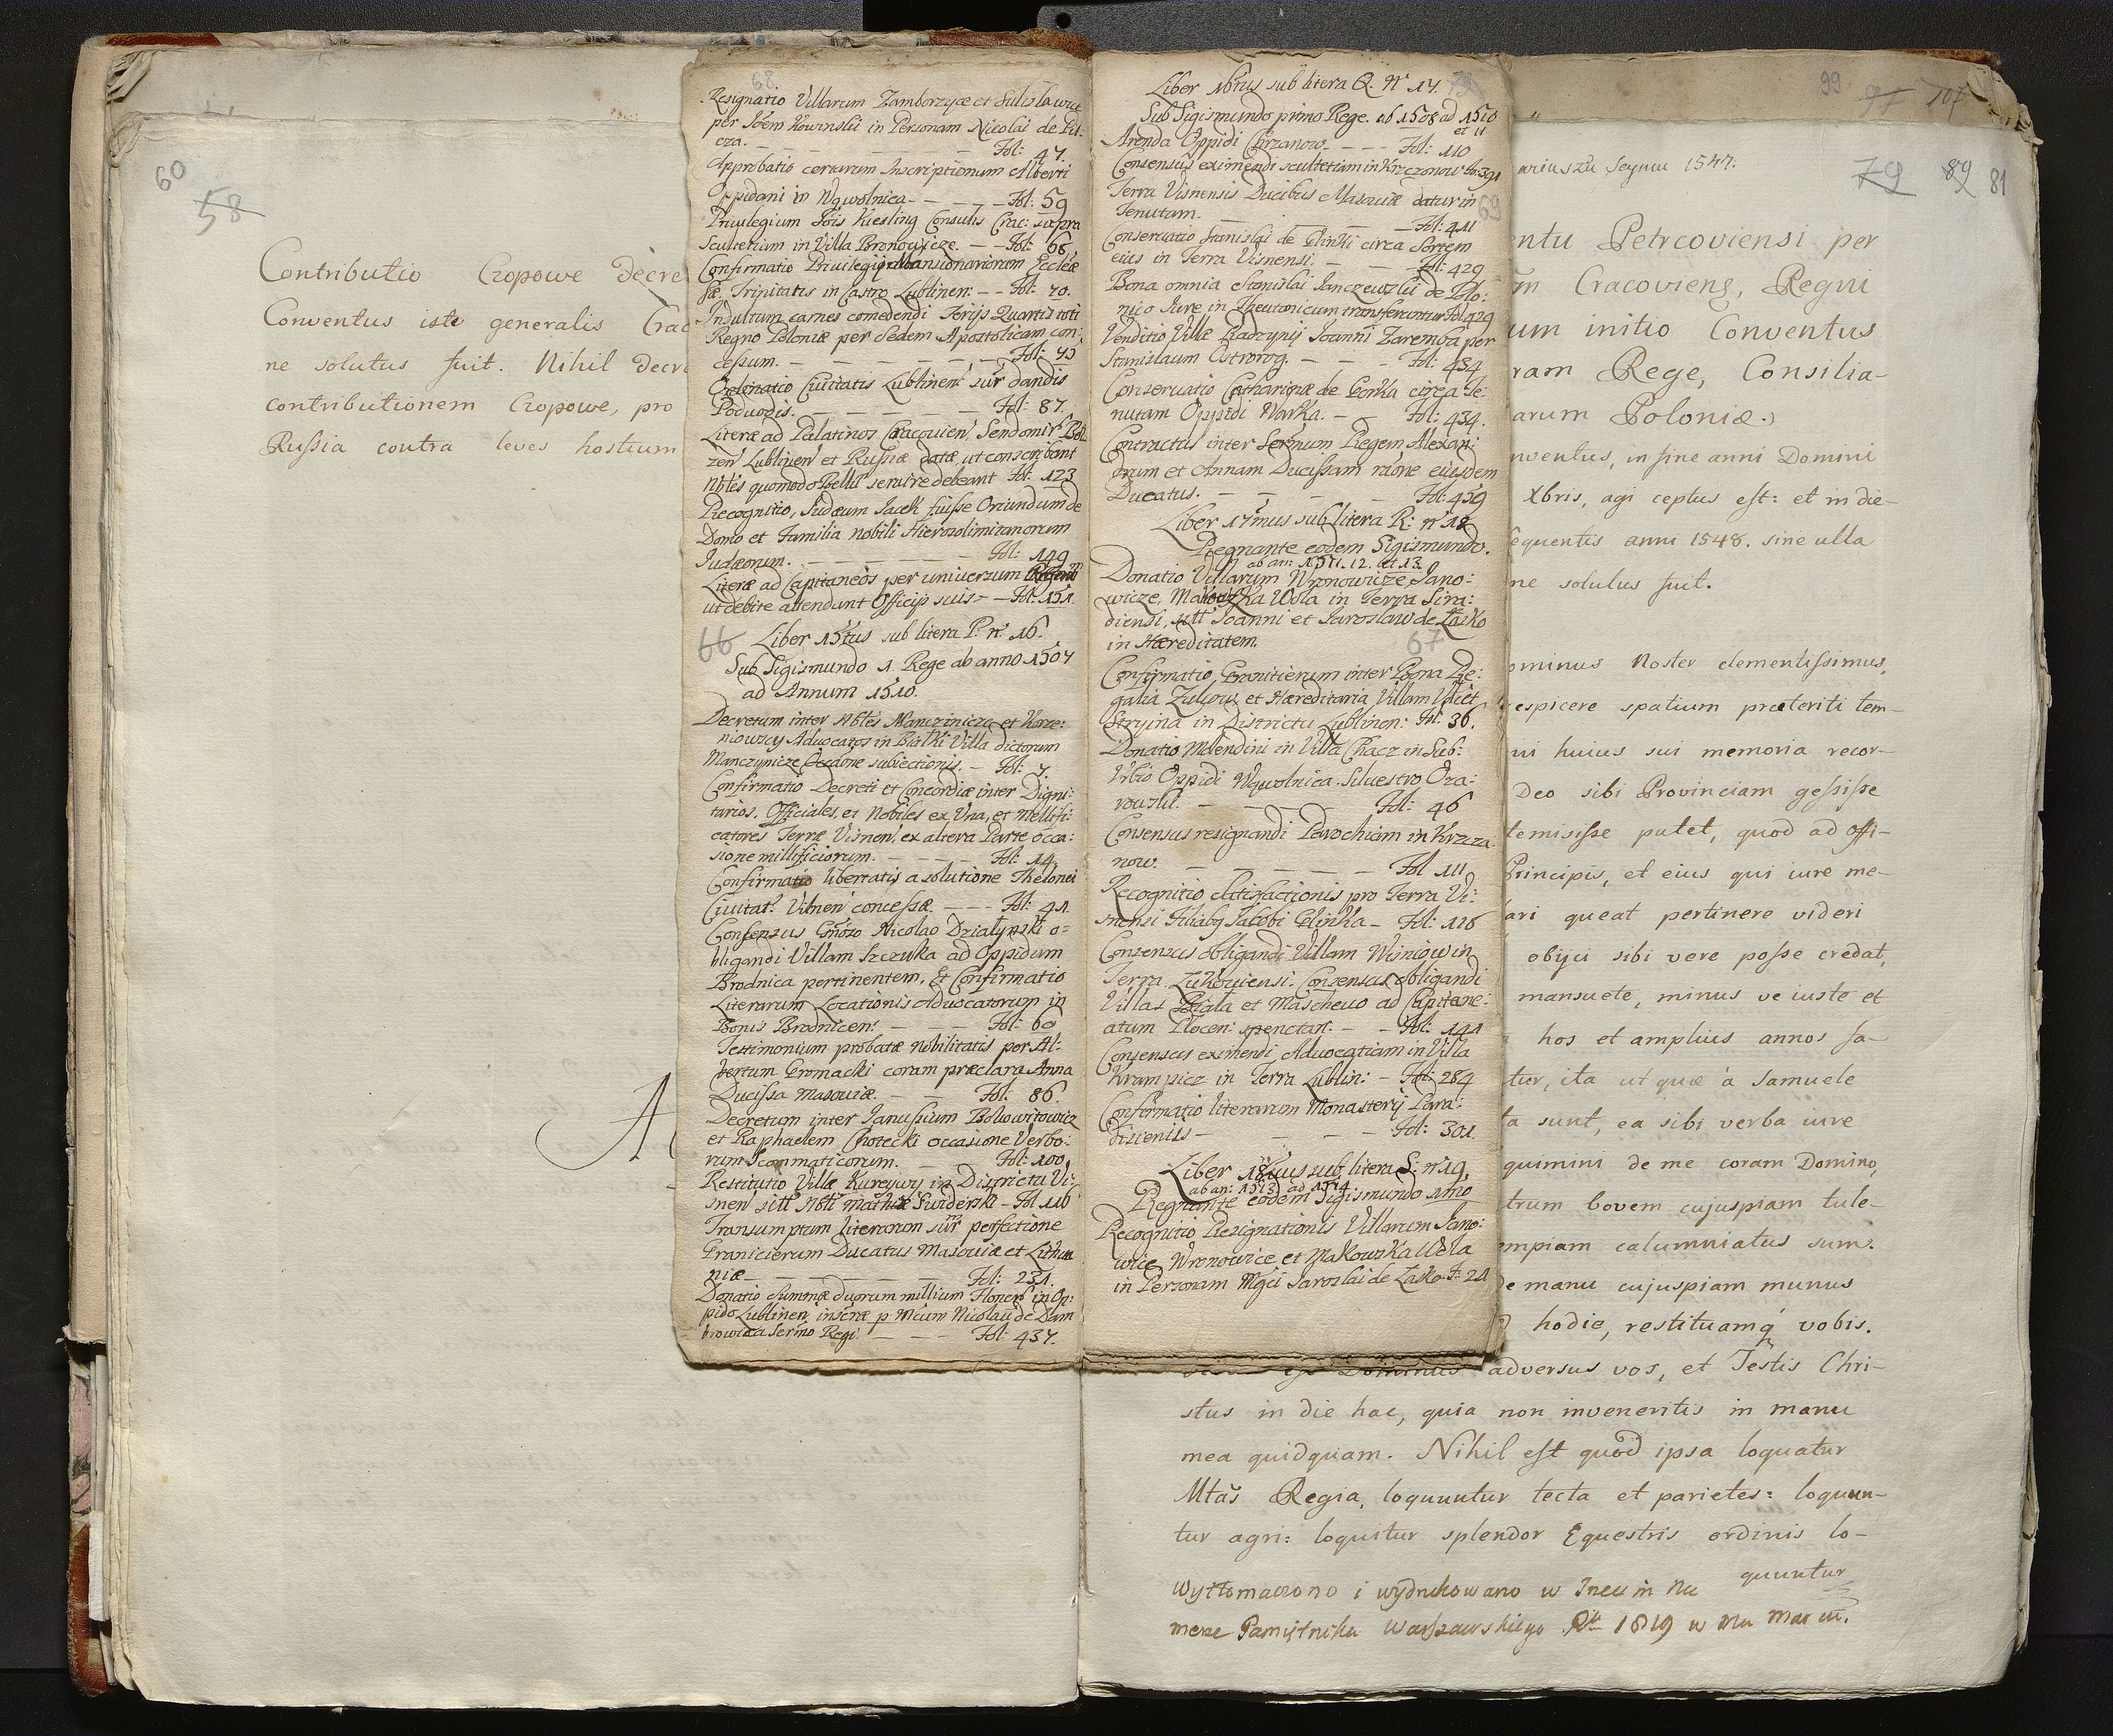 60
58
Contributio Czopowe decre
Conventus iste generalis Crac
ne solutus fuit. Nihil decre
contributionem Czopowe, pro
Rußia contra leves hostium
A
68
Resignatio Villarum Zamborzyce et Sulislawice
per Idem Kowinskii in Personam Nicolai de Pil-
cza. — Fol: 47.
Approbatio certarum Inscriptionum Alberti
Oppidani in Wąwolnica — Fol: 59
Privilegium Jois Kiesling Consulis Crac: supra
Scultetiam in Villa Bronowicze. — Fol: 68
Confirmatio Privilegij Mansionariorum Ecclæ
Sæ Trinitatis in Castro Lublinen: — Fol: 70.
Indultum carnes comedendi Ferijs Quartis toti
Regno Poloniæ per Sedem Apostolicam con:
cessum. — Fol: 75
Ordinatio Civitatis Lublinen sup dandis
Podvodis. — Fol: 87.
Literæ ad Palatinos Cracovien Sendomir Bel
zen Lublinen et Rußiæ datæ, ut conscribant
Nbles quomodo Belli servire debeant Fol: 123
Recognitio, Judæum Jacek fuisse Oriundum de
Domo et Familia nobili Hierosolimitanorum
Judæorum. — Fol: 149
Literæ ad Capitaneos per universum Regnum
ut debite attendant Officijs suis — Fol: 151.
66 Liber 15tus sub litera P: nr 16.
Sub Sigismundo 1. Rege ab anno 1507
ad Annum 1510.
Decretum inter Nbles Manczinicza et Korze:
niowscy Advocatos in Bialki Villa dictorum
Manczynicze Occone subiectionis. — Fol: 7.
Confirmatio Decreti et Concordiæ inter Digni:
tarios, Officiales, et Nobiles ex Una, et Mellifi:
catores Terræ Visnen, ex altera Parte occa:
sione mellificiorum. — Fol: 14,
Confirmatio libertatis a solutione Thelonei
Civitat: Vilnen concessæ — Fol: 41.
Consensus Gnoso Nicolao Dzialynski o=
bligandi Villam Szczuka ad Oppidum
Brodnica pertinentem, Et Confirmatio
Literarum Locationis Advocatorum in
Bonis Brodnicen: — Fol: 60
Testimonium probatæ nobilitatis per Al:
bertum Gromacki coram præclara Anna
Ducissa Masoviæ. — Fol: 86.
Decretum inter Janussium Bolwowitowicz
et Raphaelem Chotecki occasione Verbo:
rum Scommaticorum. — Fol: 100,
Restitutio Villæ Kureywy in Districtu Vi:
snen sitt Nbli Mathiæ Swiderski — Fol 116
Transumptum literarum sup perfectione
Granicierum Ducatus Masoviæ et Lithua
niæ — Fol: 231.
Donatio Summæ duorum millium Floren in Op:
pido Lublinen inscræ p Mcum Nicolau de Dam
browica Sermo Regi — Fol: 437.
Liber 16tus sub litera Q. Nr 17.
Sub Sigismundo primo Rege. ab 1508 ad 1510
et 11
Arenda Oppidi Chrzanow. — Fol: 110
Consensus eximendi scultetiam in Krzczonow Fol: 391
Terra Visnensis Ducibus Masoviæ datur in
Tenutam. — Fol: 411
69
Conservatio Stanislai de Glinki circa Sortem
eius in Terra Visnensi. — Fol: 429
Bona omnia Stanislai Janczewskii de Polo:
nico Jure in Theutonicum transferuntur Fol 429
Venditio Villæ Radzynij Joanni Zaremba per
Stanislaum Ostrorog. — Fol: 434
Conservatio Catharinæ de Gorka circa Te:
nutam Oppidi Warka. — Fol: 434.
Contractus inter Sermum Regem Alexan:
drum et Annam Ducissam rone eiusdem
Ducatus. — Fol: 459
Liber 17mus sub litera R: nr 18
Regnante eodem Sigismundo.
ab an: 1511. 12. et 13
Donatio Villarum Wronowicze Jano:
wicze, Makowzka Wola in Terra Sira:
diensi, sitt Joanni et Jaroslao de Lasko
in Hæreditatem. 67
Confirmatio Granitierum inter Bona Re:
galia Zulow, et Hæreditaria Villam Uhiet
Stryina in Districtu Lublinen: Fol: 36.
Donatio Molendini in Villa Chacz in Sub:
Urbio Oppidi Wąwolnica Silvestro Oza:
rowskii. — Fol: 46
Consensus resignandi Parochiam in Krzcza
now. — Fol 111
Recognitio satisfactionis pro Terra Vi:
snensi filiabq Jacobi Glinka — Fol: 116
Consensus Obligandi Villam Wisniow in
Terra Lukowiensi. Consensus obligandi
Villas Biala et Mascheuo ad Capitane:
atum Plocen: spenctan: — Fol: 141
Consensus eximendi Advocatiam in Villa
Krampicz in Terra Lublin: — Fol: 284
Confirmatio literarum Monasterij Para:
disiensis — Fol: 301.
Liber 18vus sub litera S: nr 19,
ab an: 1513 ad 1514.
Regnante eodem Sigismundo 1mo
Recognitio Resignationis Villarum Jano:
wice, Wronowice, et Makowzka Wola
in Personam Mgci Jaroslai de Lasko. F: 21
99 97 107
ariuszu Seymu 1547.
79 89 81
entu Petrcoviensi per
m Cracovienş, Regni
um initio Conventus
ram Rege, Consilia-
arum Poloniæ.
nventus, in fine anni Domini
Xbris, agi ceptus est: et in die-
equentis anni 1548. sine ulla
ne solutus fuit.
ominus Noster clementissimus,
espicere spatium præteriti tem-
ni huius sui memoria recor-
Deo sibi Provinciam geßiße
temisiße putet, quod ad offi-
Principis, et eius qui iure me-
ari queat pertinere videri
obijci sibi vere poße credat,
mansuete, minus ve iuste et
hos et amplius annos fa-
tur, ita ut quæ a Samuele
ta sunt, ea sibi verba iure
quimini de me coram Domino,
trum bovem cujuspiam tule-
mpiam calumniatus sum.
e manu cujuspiam munus
hodie, restituamq vobis.
Dominus adversus vos, et Testis Chri-
stus in die hac, quia non inveneritis in manu
mea quidquam. Nihil est quod ipsa loquatur
Mtas Regia, loquuntur tecta et parietes: loquun-
tur agri: loquitur splendor Equestris ordinis lo-
quuntur
Wytłomaczono i wydrukowano w Trzecim Nu
merze Pamiętnika Warszawskiego Rku 1819 w Mcu Marcu.